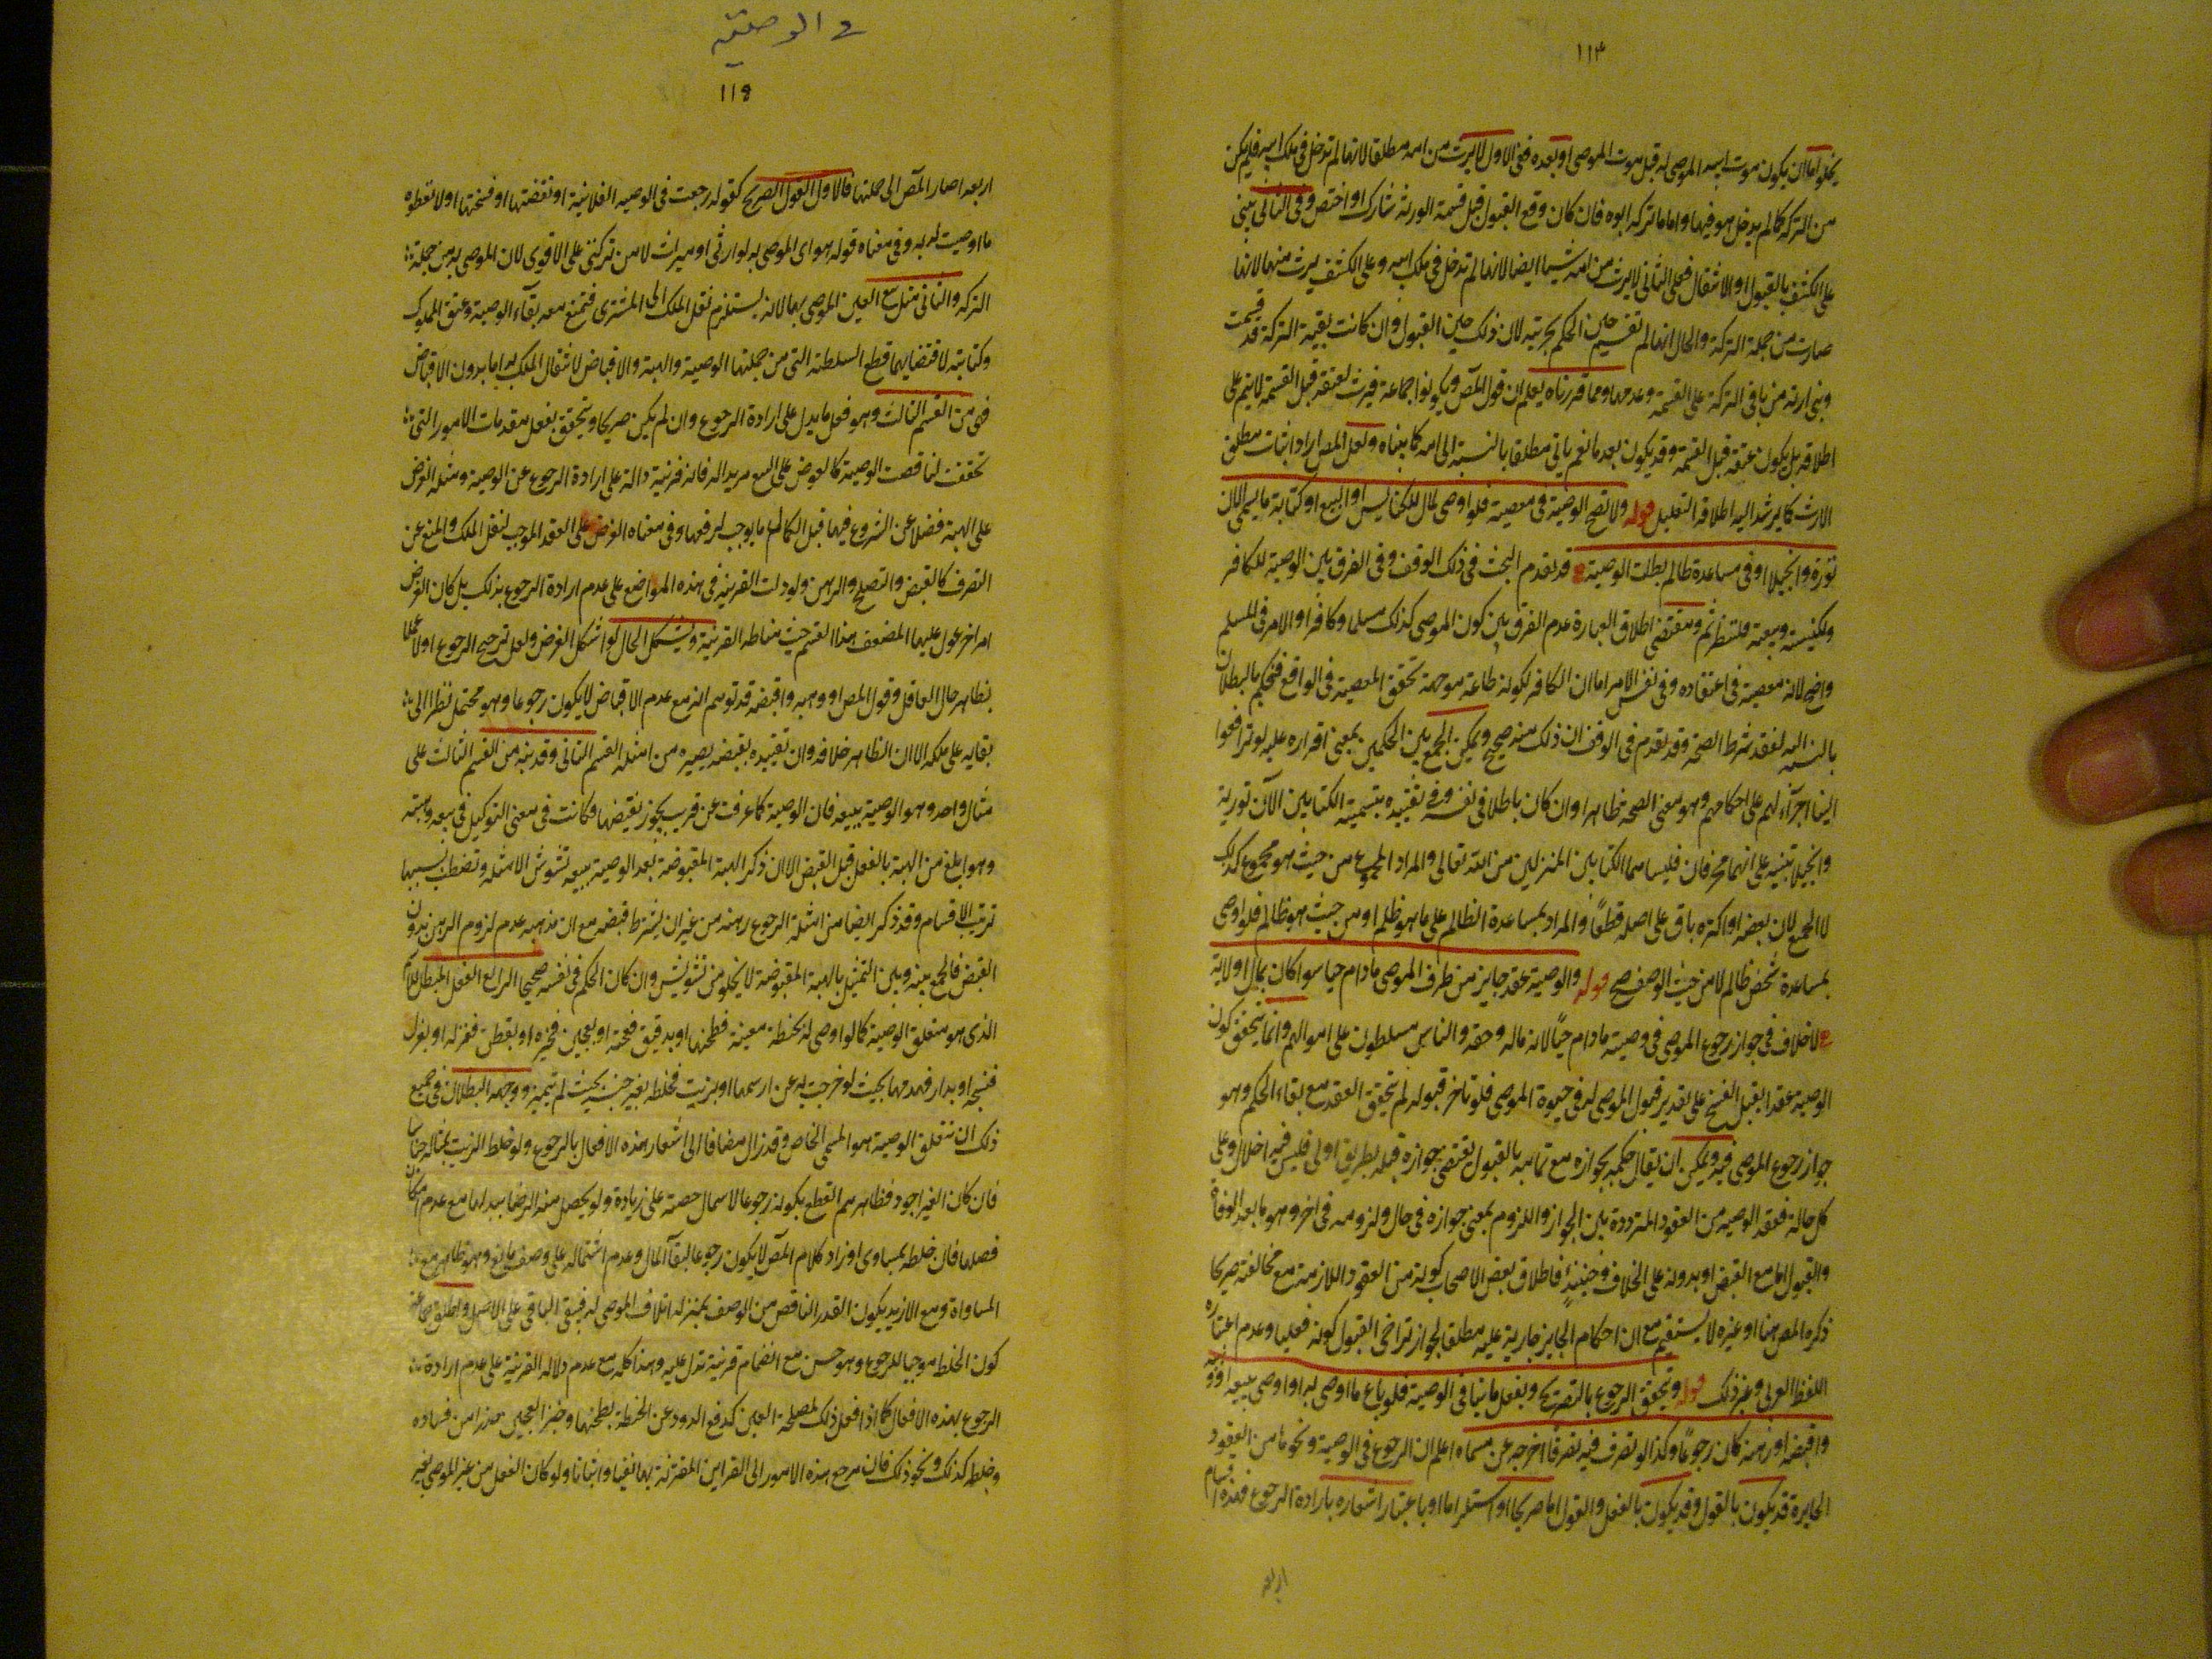 ١١٣
يخلو اما ان يكون موت ابيه الموصى له قبل موت الموصى او بعده ففي الاول لا يرث من امه مطلقا لانها لم تدخل في ملك ابيه فلم يكن
من التركة كما لم يدخل هو فيها واما ما تركه ابوه فان كان وقع القبول قبل قسمة الورثة شارك او اختص وفي الثاني يبنى
على الكشف بالقبول او الانتقال فعلى الثاني لا يرث من امه شيئا ايضا لانها لم تدخل في ملك ابيه وعلى الكشف يرث منها لانها
صارت من جملة التركة والحال انها لم تقسم حين الحكم بحريته لان ذلك حين القبول وان كانت بقية التركة قد قسمت
وبنى ارثه من باقي التركة على القسمة وعدمها ومما قررناه يعلم ان قول المص ويكونوا جماعة فيرث لعتقه قبل القسمة لا يتم على
اطلاقه بل يكون عتقه قبل القسمة وقد يكون بعدها نعم ياتي مطلقا بالنسبة الى امه كما بيناه ولعل المص اراد اثبات مطلق
الارث كما يرشد اليه اطلاقه التعليل قوله ولا تصح الوصية في معصية فلو اوصى بمال للكنايس او البيع او كتابة ما يسمى الان
تورية وانجيلا او في مساعدة ظالم بطلت الوصية قد تقدم البحث في ذلك الوقف وفي الفرق بين الوصية للكافر
ولكنيسته وبيعته فلتنظر ثم ومقتضى اطلاق العبارة عدم الفرق بين كون الموصى كذلك مسلما وكافرا والامر في المسلم
واضح لانه معصية في اعتقاده وفي نفس الامر اما ان الكافر لكونه طاعة موجهة تحقق المعصية في الواقع فنحكم بالبطلان
بالنسبة اليه لفقد شرط الصحة وقد تقدم في الوقف ان ذلك منه صحيح ويمكن الجمع بين الحكمين بمعنى اقراره عليه لو ترافعوا
الينا اجرآء لهم على احكامهم وهو معنى الصحة ظاهرا وان كان باطلا في نفسه وفي تقييده بتسمية الكتابين الآن تورية
وانجيلا تنبيه على انهما محرفان فليسا هما الكتابين المنزلين من الله تعالى والمراد المجموع من حيث هو مجموع كذلك
لا الجميع لان بعضه او اكثره باق على اصله قطعًا والمراد بمساعدة الظالم على ما هو ظلم او من حيث هو ظالم فلو اوصى
بمساعدة شخص ظالم لا من حيث الوصف صح قوله والوصية عقد جايز من طرف الموصى ما دام حيا سوا كان بمال او ولاية
لا خلاف في جواز رجوع الموصى في وصيته ما دام حيًّا لانه ماله وحقه والناس مسلطون على اموالهم وانما يتحقق كون
الوصية عقدا يقبل الفسخ على تقدير قبول الموصى له في حيوة الموصى فلو تاخر قبوله لم يتحقق العقد مع بقاء الحكم وهو
جواز رجوع الموصى فيه ويمكن ان يقال حكمه بجوازه مع تمامه بالقبول يقتضي جوازه قبله بطريق اولى فليس فيه اخلال وعلى
كل حالة فعقد الوصية من العقود المترددة بين الجواز واللزوم بمعنى جوازه في حال ولزومه في اخر وهو ما بعد الوفاة
والقبول اما مع القبض او بدونه على الخلاف وحينئذٍ فاطلاق بعض الاصحاب كونه من العقود اللازمة مع مخالفته صريحا
ذكره المص هنا او غيره لا يستقيم مع ان احكام الجايز جارية عليه مطلقا لجواز تراخي القبول كونه فعليا وعدم اعتباره
اللفظ العربي وغير ذلك قوله ويتحقق الرجوع بالتصريح وبفعل ما ينافي الوصية فلو باع ما اوصى به او اوصى ببيعه او وهبه
واقبضه او رهنه كان رجوعًا وكذا لو تصرف فيه تصرفًا اخرجه عن مسماه اعلم ان الرجوع في الوصية ونحوها من العقود
الجايزة قد يكون بالقول وقد يكون بالفعل والقول اما صريحا او استلزاما او باعتبار اشعاره بارادة الرجوع فهذه اقسام
اربعه
في الوصية
١١٤
اربعه اصار المص الى جلتها فالاول القول الصريح كقوله رجعت في الوصيه الفلانية او نقضتها او فسختها او لا تعطوه
ما اوصيت له به وفي معناه قوله هو اى الموصى به لوارثي او ميراث لا من تركتي على الاقوى لان الموصى به من جملة
التركه والثاني مثل بيع العين الموصى بها لانه يستلزم نقل الملك الى المشترى فتمتنع معه بقآء الوصية وعتق المملوك
وكتابته لاقتضايهما قطع السلطنة التي من جملتها الوصية والهبة والاقباض لانتقال الملك به اما بدون الاقباض
فهي من القسم الثالث وهو فعل ما يدل على ارادة الرجوع وان لم يكن صريحا ويتحقق بفعل مقدمات الامور التي
تحققت لناقضت الوصية كالعرض على البيع مريدا له فانه قرينة دالة على ارادة الرجوع عن الوصية ومثله العرض
على الهبة فضلا عن الشروع فيها قبل اكمالها ما يوجب لرفعها وفي معناه العرض على العقد الموجب لنقل الملك والمنع عن
التصرف كالقبض والصلح والرهن ولو دلت القرينة في هذه المواضع على عدم ارادة الرجوع بذلك بل كان العرض
امر اخر عول عليها المضعف هذا القسم حيث مناطه القرينة ويشكل الحال لو اشكل العرض ولعل ترجيح الرجوع اولا عملا
بظاهر حال العاقل وقول المص او وهبه واقبضه قد توهم انه مع عدم الاقباض لا يكون رجوعا وهو محتمل نظرا الى
بقايه على ملكه الا ان الظاهر خلافه وان تقييده بقبضه يصيره من امثله القسم الثاني وقد نبه من القسم الثالث على
مثال واحد وهو الوصية ببيعه فان الوصية كما عرفت عن قريب يجوز نقيضها فكانت في معنى التوكيل في بيعه وهبته
وهو ابلغ من الهبة بالفعل قبل القبض الا ان ذكر الهبة المقبوضة بعد الوصية ببيعه تشوش الامثله وتضطرب بسببها
ترتيب الاقسام وقد ذكر ايضا من امثلة الرجوع رهنه من غير ان يشترط قبضه مع ان مذهبه عدم لزوم الرهن بدون
القبض فالجمع بينه وبين التمثيل بالهبة المقبوضة لا يخلو من تشويش وان كان الحكم في نفسه صحيحا الرابع الفعل المبطل للاسم
الذي هو متعلق الوصية كما لو اوصى له بحنطة معينة فطحنها او بدقيق فعجنه او بعجين فخبزه او بقطن فغزله او بغزل
فنسجه او بدار فهدمها بحيث لو خرجت به عن اسمها او بزيت فخلطه بغير جنسه بحيث لم يتميز ووجه البطلان في جميع
ذلك ان متعلق الوصية هو المسمى الخاص وقد زال مضافا الى اشعار هذه الافعال بالرجوع ولو خلط الزيت بمثاله جنسا
فان كان الغير اجود فظاهرهم القطع بكونه رجوعا لاشتمال حصته على زيادة ولو يحصل منه الرضا ببدلها مع عدم امكان
فصلها فان خلطه بمساوى او زاد كلام المص لا يكون رجوعا لبقآ المال وعدم اشتماله على وصف مانع وهو ظاهر مع
المساواة ومع الازيد يكون القدر الناقص من الوصف بمنزلة اتلاف الموصى له فيبقى الباقي على الاصل واطلق جماعة
كون الخلط موجبا للرجوع وهو حسن مع انضمام قرينة تدل عليه وهذا كله مع عدم دلالة القرينة على عدم ارادة
الرجوع بهذه الافعال كما اذا فعل ذلك لمصلحة العين كدفع الدود عن الحنطة بطحنها وخبز العجين حذرا من فساده
وخلطه كذلك ونحو ذلك فان مرجع هذه الامور الى القراين المقترنة بها نفيا واثباتا ولو كان الفعل من غير الموصي بغير